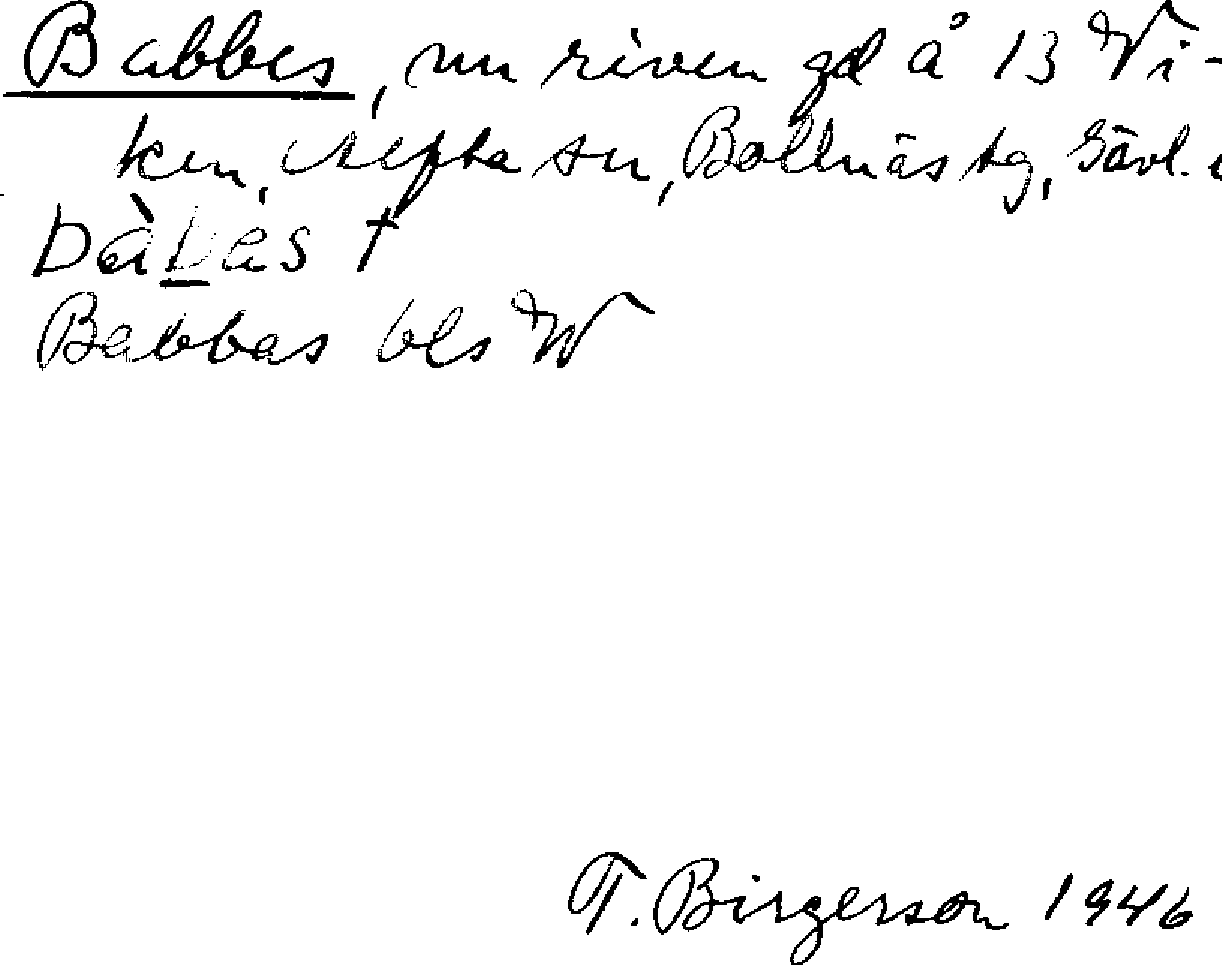 Babbes, nu riven gd å 13 Vi-
ken, Alfta sn, Bollnäs tg, Gävl.
bàb̲as †
Babbas bls W
T. Birgerson 1946